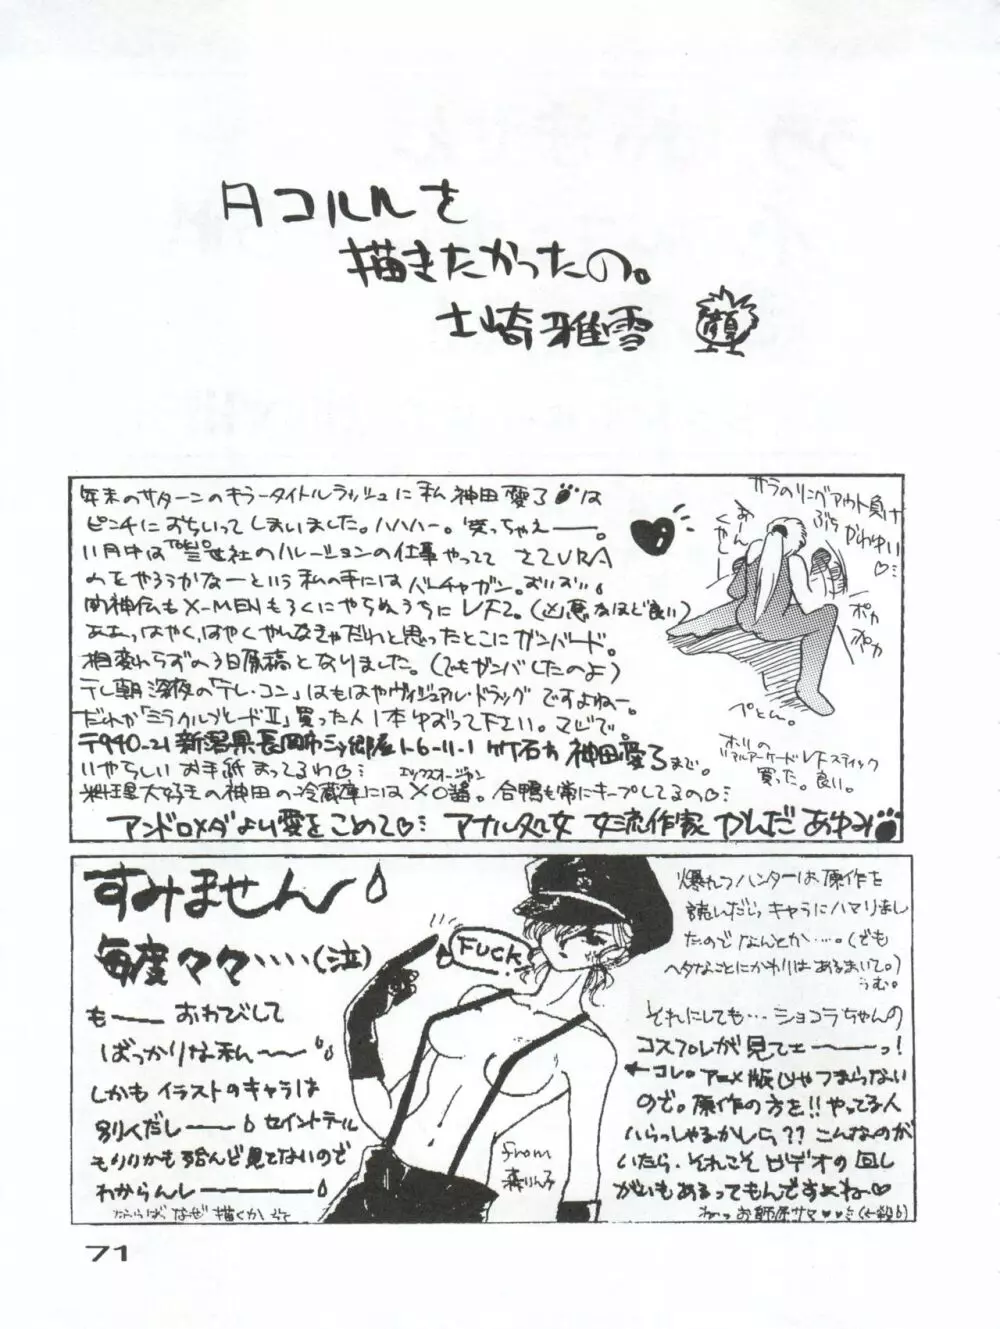 タコルルを
描きたかったの。
士崎雅雪
顔
年末のサターンのキラータイトルラッシュに私 神田愛了は
ピンチにおちいってしまいました。ハハハー。笑っちゃえ――。
11月中は 社のハレーションの仕事やってて さてURA
のをやろうかなーという私の手にはバーチャガン。
闘神伝もX-MENもろくにやらぬうちにVF2。(凶悪なほど良い)
ああっはやく、はやくやんなきゃだわと思ったとこにガンバード。
相変わらずの3日原稿となりました。(でもガンバしたのよ)
テレ朝深夜の「テレ・コン」はもはやヴィジュアル・ドラッグですよねー
だれか「ミラクルブレードII」買った人1本ゆずって下さい。マジで。
いやらしいお手紙まってるわ♡
エックスオージャン
料理大好きの神田の冷蔵庫にはXO醤。合鴨も常にキープしてるの♡
アンドロメダより愛をこめて♡ アナル処女 女流作家 かんだあゆみ
サラのリングアウト負け
ぶち かわゆい
♡
あーん
くやしー
ポカ
ポカ
ぺとん。
ホリの
リアルアーケードVFスティック
買った。良い。
すみません
毎度々々‥‥(泣)
も―― おわびして
ばっかりな私――
しかもイラストのキャラは
別人だし―― セイントテール
もりりかも殆んど見てないので
わからんし――
ならばなぜ描くか
FUCK
from
森りん子
爆れつハンターは、原作を
読んだらキャラにハマりまし
たのでなんとか‥‥。(でも
ヘタなことにかわりはあるまいて。)
うむ。
それにしても…ショコラちゃんの
コスプレが見てェ――っ!
←コレ。アニメ版じゃつまらない
ので。原作の方を!!やってる人
いらっしゃるかしら??こんなのが
いたら、それこそビデオの回し
がいもあるってもんですよね♡
ねっお師匠サマ♥♥
71